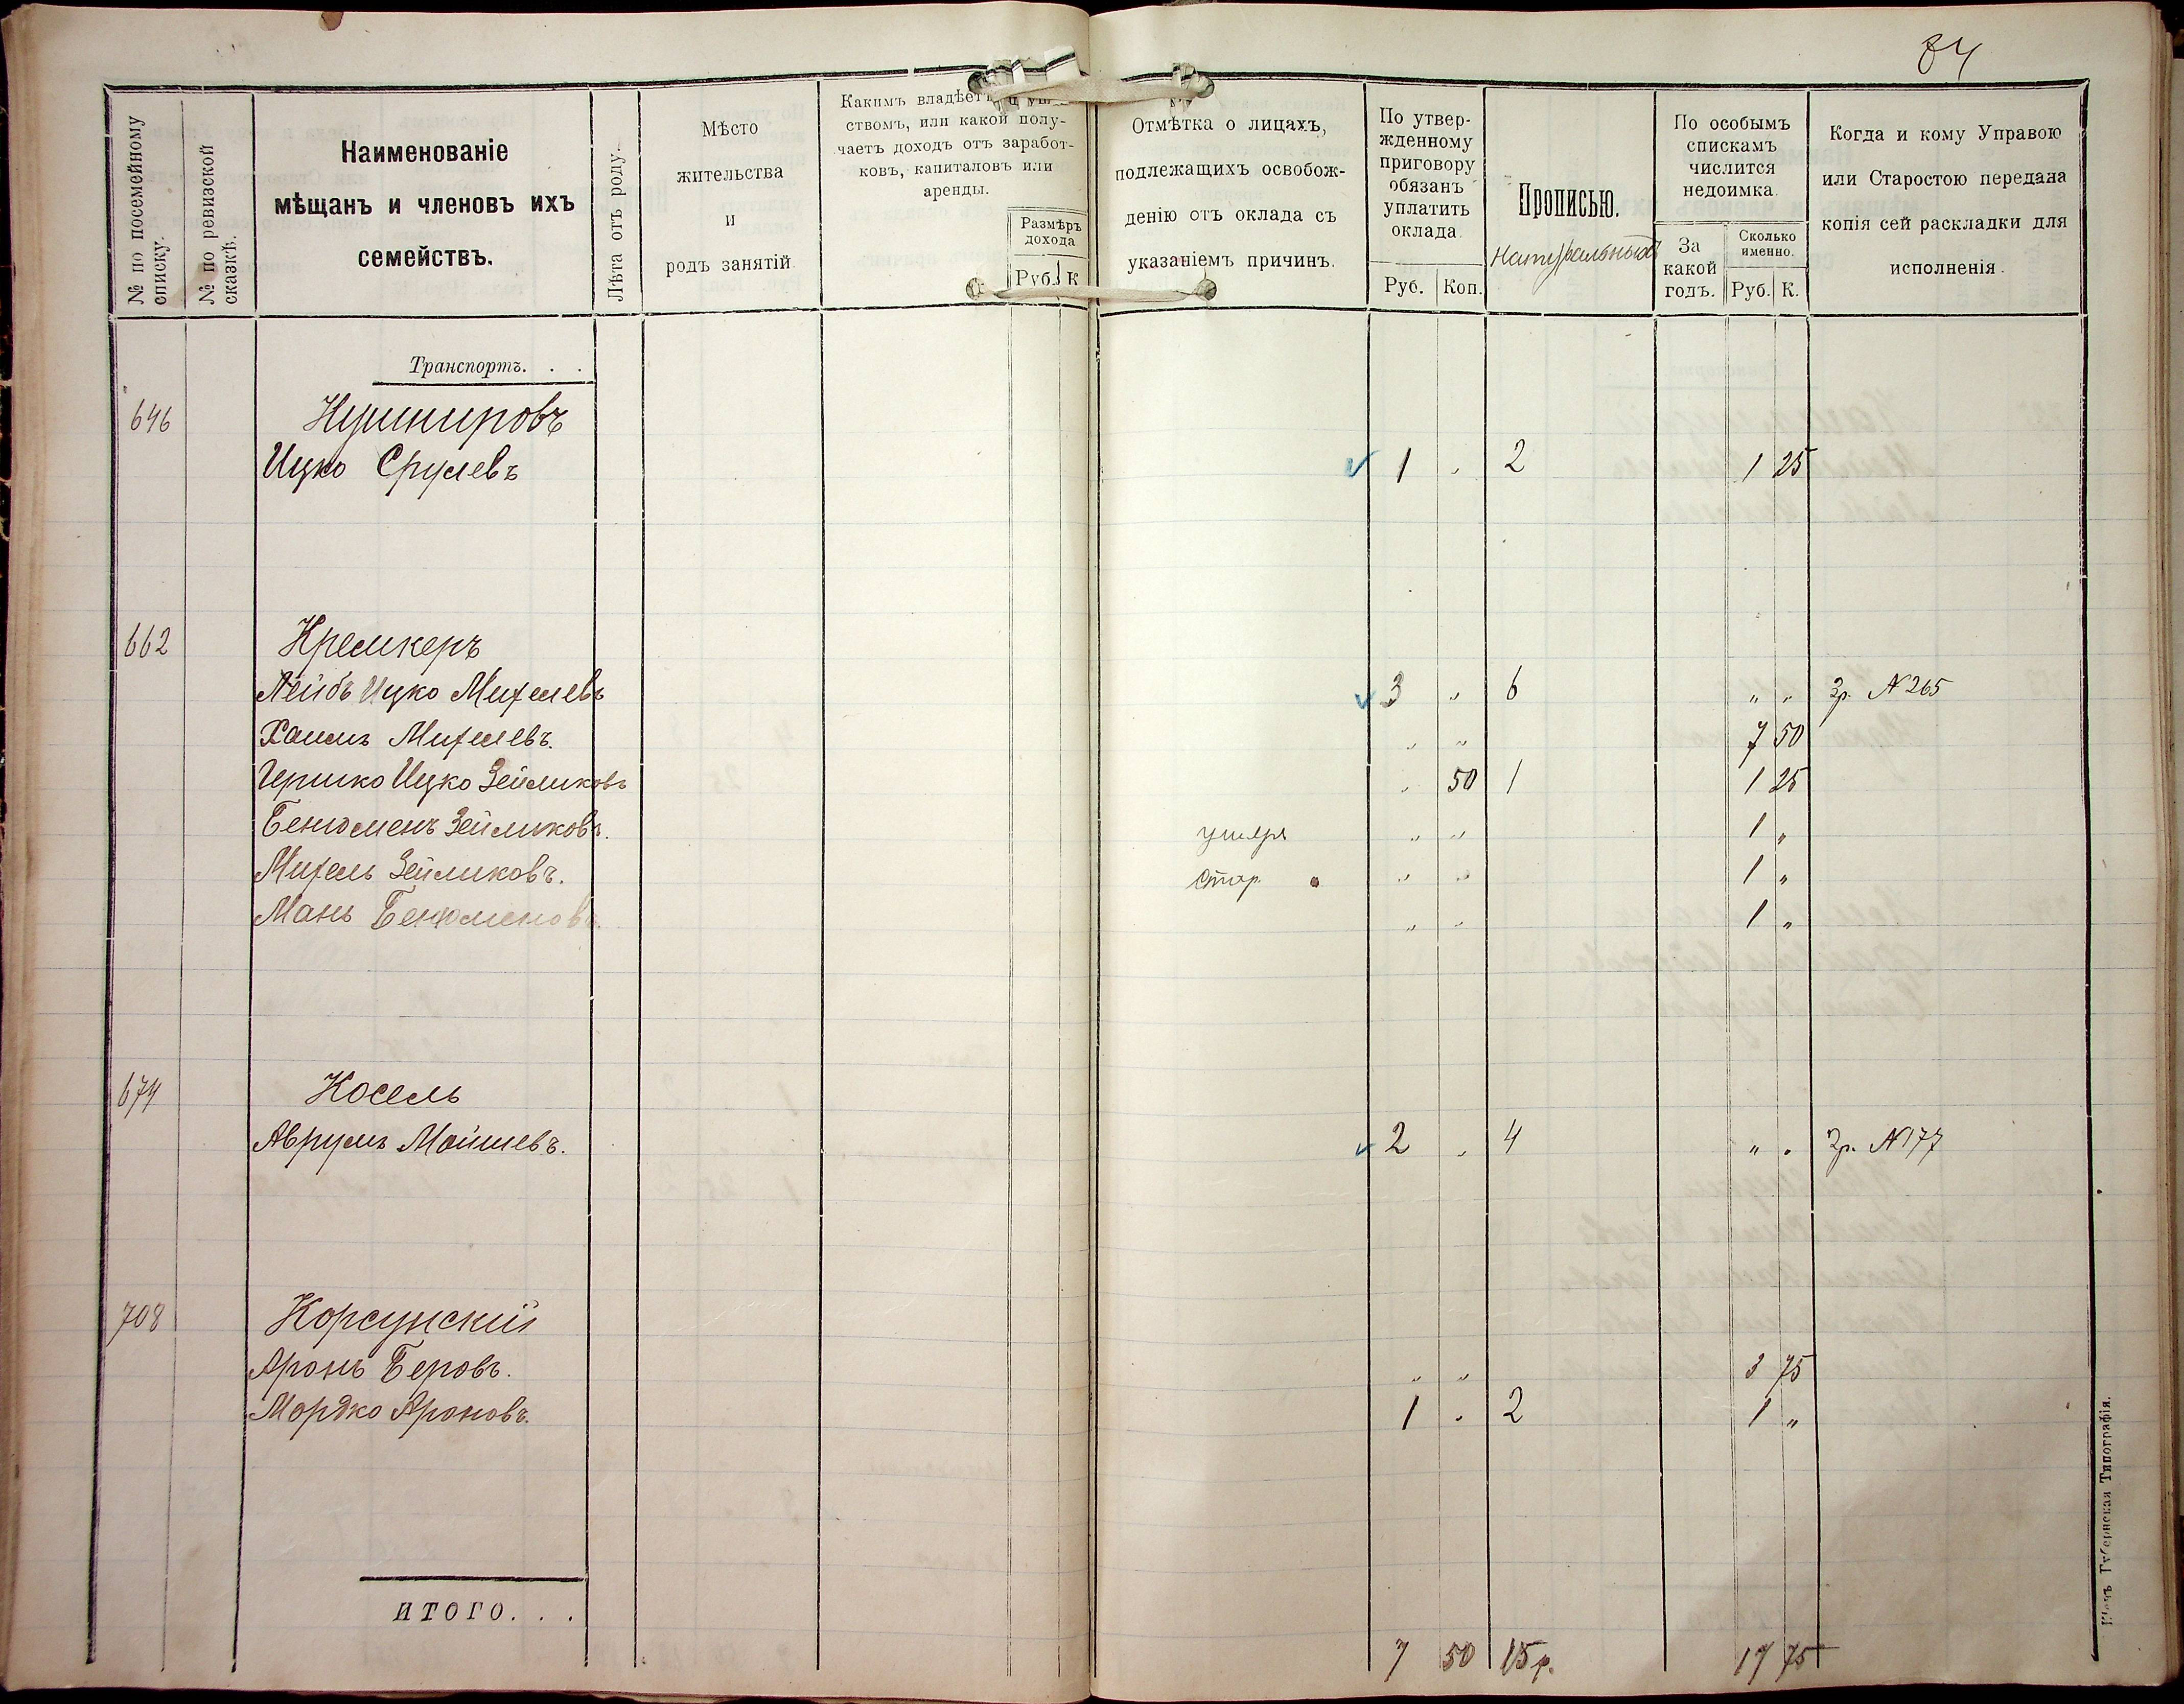 84
№ по посемейному списку.
№ по ревизской сказкѣ.
Наименованіе
мѣщанъ и членовъ ихъ
семействъ.
Лѣта отъ роду.
Мѣсто
жительства
и
родъ занятій
Какимъ владѣетъ
ствомъ, или какой полу-
чаетъ доходъ отъ заработ-
ковъ, капиталовъ или
аренды.
Размѣръ
дохода
Руб. К
Отмѣтка о лицахъ,
подлежащихъ освобож-
денію отъ оклада съ
указаніемъ причинъ.
По утвер-
жденному
приговору
обязанъ
уплатить
оклада
Руб. Коп.
Прописью.
Натуральныхъ
По особымъ
спискамъ
числится
недоимка
За
какой
годъ.
Сколько
именно.
Руб. К.
Когда и кому Управою
или Старостою передана
копія сей раскладки для
исполненія.
Транспортъ. . .
646 Кушнировъ
Ицко Срулевъ 1 " 2 1 25
662 Кремкеръ
Лейбъ Ицко Михелевъ 3 " 6 " " Зр. № 265
Хаимъ Михелевъ. " " 7 50
Гершко Ицко Зейликовъ " 50 1 1 25
Бенюменъ Зейликовъ. умеръ " " 1 "
Михель Зейликовъ. Стар. " " 1 "
Мань Бенюменовъ. " " 1 "
674 Косель
Аврумъ Мойшевъ. 2 " 4 " " Зр. № 177
708 Корсунскій
Аронъ Беровъ. " " 3 75
Мордко Ароновъ. 1 " 2 1 "
ИТОГО. . .
7 50 15 р. 17 75
Губернская Типографія.